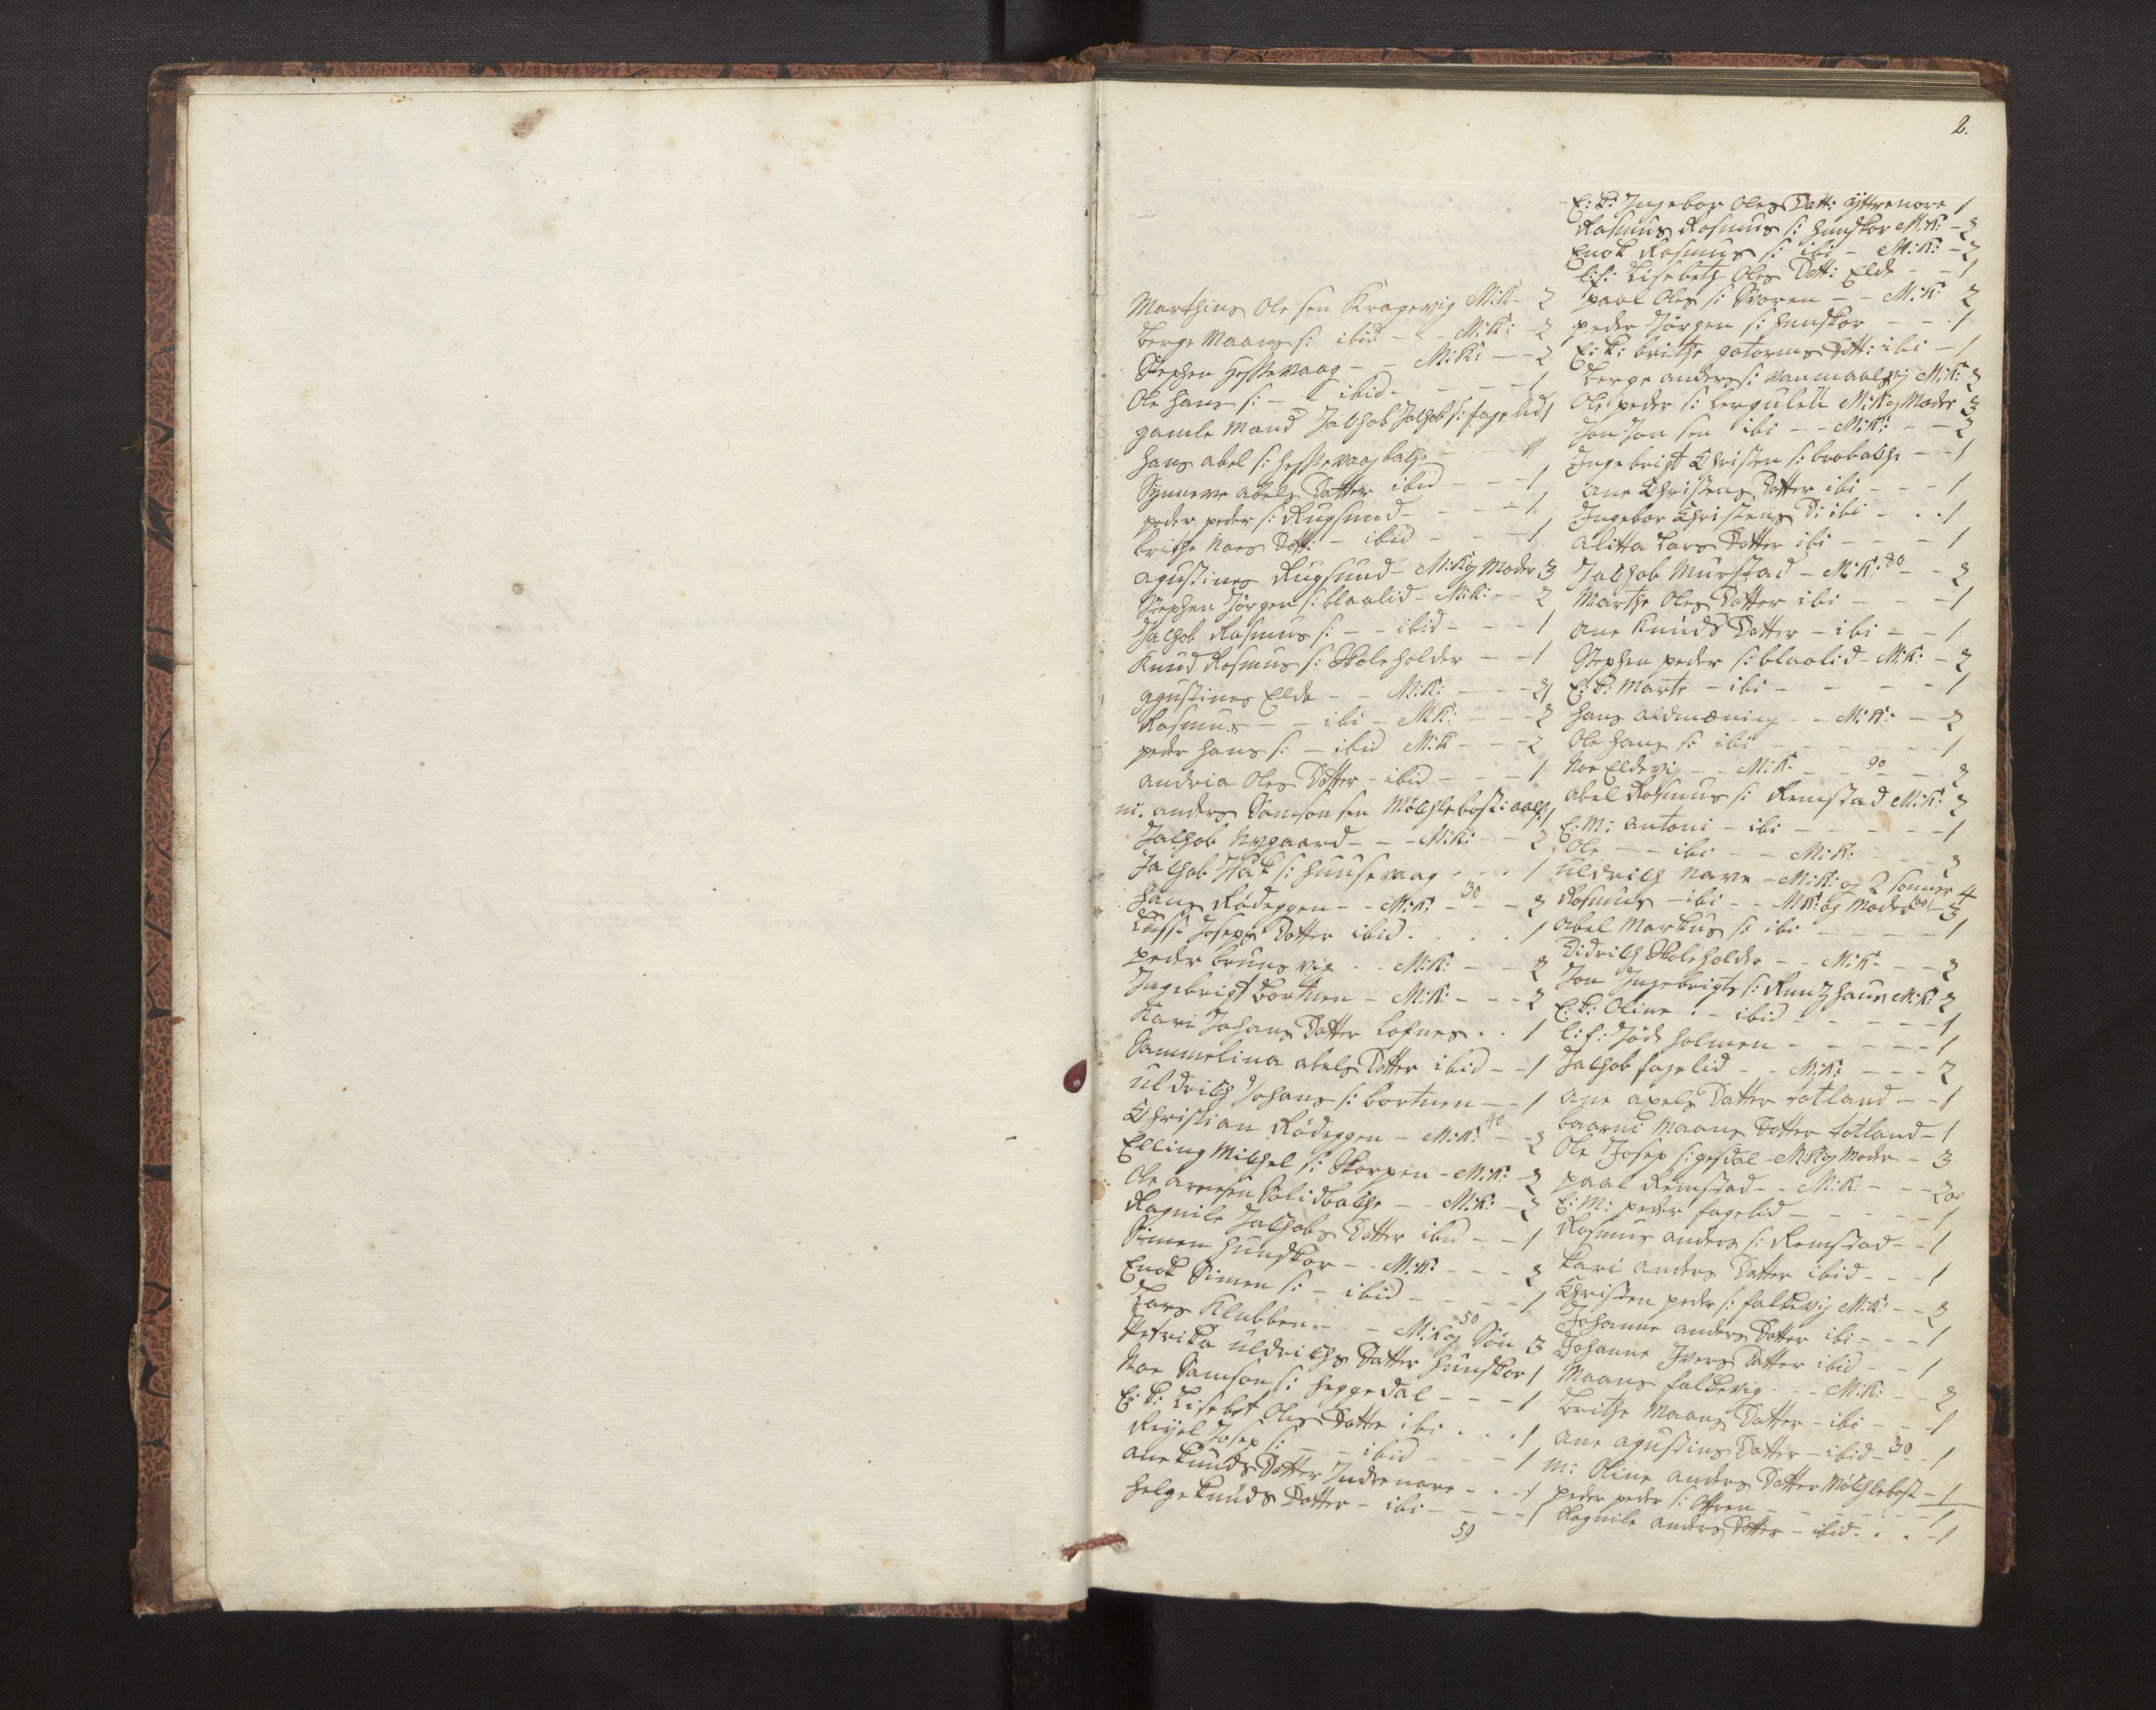 2.
Marthins Ole sen Kragevig M:K: - 2
Berge Maans s: ibid - - M:K: - 2
Stephen Hessevaag - - M:K: - - 2
Ole Hans s: - ibid - - - 1
gamle Mand Jachob Jachob s: fagelid 1
Hans abel s: Hessevaagbache - - 1
Synneve abels Datter ibid - - - 1
peder peder s: Rugsund - - - 1
brithe Noes Dott: - ibid - - 1
agustines Rugsund - M:K: og Moder 3
Stephen Jørgen s: blaalid - M:K: - - 2
Jachob Rasmus s: - - ibid - - - 1
Knud Rasmus s: Skoleholder - - 1
agustines Elde - - M:K: - - - 2
Rasmus - - ibi - M:K: - - - 2
peder Hans s: - ibid M:K - - - 2
andria Oles Datter - ibid - - - 1
m: anders Samson sen Møchlebost: 1
Jachob Nygaard - - - M:K: - - 2
Jachob s: Huusevaag . . . 1
Hans Rødeggen - - M:K: - 30 - - 2
Josephs Datter ibid . . . . 1
peder brunsvig - - M:K: - - - 2
Ingebrigt bortnen - M:K: - - - 2
Kari Johans Datter Lofnes . . 1
Sammelina abels Datter ibid - - 1
Uldrich Johans s: bortnen - - 1
Christian Rødeggen - M:K: 40 - - 2
Elling Michel s: Skorpen - M:K: - 2
Ole arnesen Solidbache - - M:K: - 2
Ragnile Jachobs Datter ibid - - 1
Simen Hundskor - - M:K: - - - 2
Enok Simen s: - ibid - - - - 1
Lars Klubben - - - M:K og Søn 50 3
Petrika Uldrichs Datter Hundskor 1
Noe Samson s: Heggedal - - - 1
E: K: Lisebet Oles Datter ibi . . . 1
Josep s: - - ibid - - - 1
ane Knuds Datter Indrenore - . . 1
Helge Knuds Datter - ibi - - - - 1
59
E: K: Ingebor Oles Datt: Yttrenore 1
Rasmus Rasmus s: Hundskor M:K: - 2
Enok Rasmus s: ibi - M:K: - 2
Lisebeth Oles Dott: Elde - - 1
paal Oles s: - - M:K: 2
peder Jørgen s: Hundskor - - - 1
E: K: brithe gatorms Dott: ibi - 1
berge anders s: M:K: 2
Ole peder s: M:K og Moder 3
Jon Jon sen ibi - - M:K: - - 2
Ingebrigt Christen s: - - 1
ane Christens Datter ibi - - - 1
Ingebor Christens D: ibi - . . 1
alitta Lars Datter ibi - - - 1
Jachob Murstad - M:K: 80 - - 2
Marthe Oles Datter ibi - - - 1
ane Knuds Datter - ibi - - 1
Stephen peder s: blaalid - M:K: - 2
E: K: Marte - ibi - - - - 1
Hans aldmæning - - M:K: - - 2
Ole Hans s: ibi - - - - - 1
Noe Eldevig - - M:K - - 90 - 2
abel Rasmus s: Remstad M:K: 2
E: M: antoni - ibi - - - - - 1
Ole - - ibi - - M:K: - - - 2
Uldrich Nave - M:K: og 2 sønner 4
Rasmus - ibi - - MK: og Moder 3
abel Markus s: ibi - - - - - 1
Didrich Skoleholder - - M:K: - - - 2
Jon Ingebrigts s: M:K: 2
E: K: Oline : - ibid - - - - - 1
holmen - - - - - 1
Jachob fagelid - - M:K: - - - 2
ane axels Datter totland - - 1
Maans Datter totland - 1
Ole Josep s: gesdal - M:K og Moder - 3
paal Remstad - - M:K: - - - 2
E: M: peder fagelid - - - - - 1
Rasmus anders s: Remstad - - 1
Kari anders Datter ibid - - - 1
Christen peder s: falkevig M:K: - - 2
Johanne anders Datter ibi - - - 1
Johanne Ivers Datter ibid - - 1
Maans falkevig - - - M:K: - - 2
brithe Maans Datter - ibi - - - 1
ane agustins Datter - ibid - 30 . 1
m: Oline anders Datter Møchlebost - 1
peder peder s: - - - - - - 1
Ragnile anders Datter - ibid . . . - 1